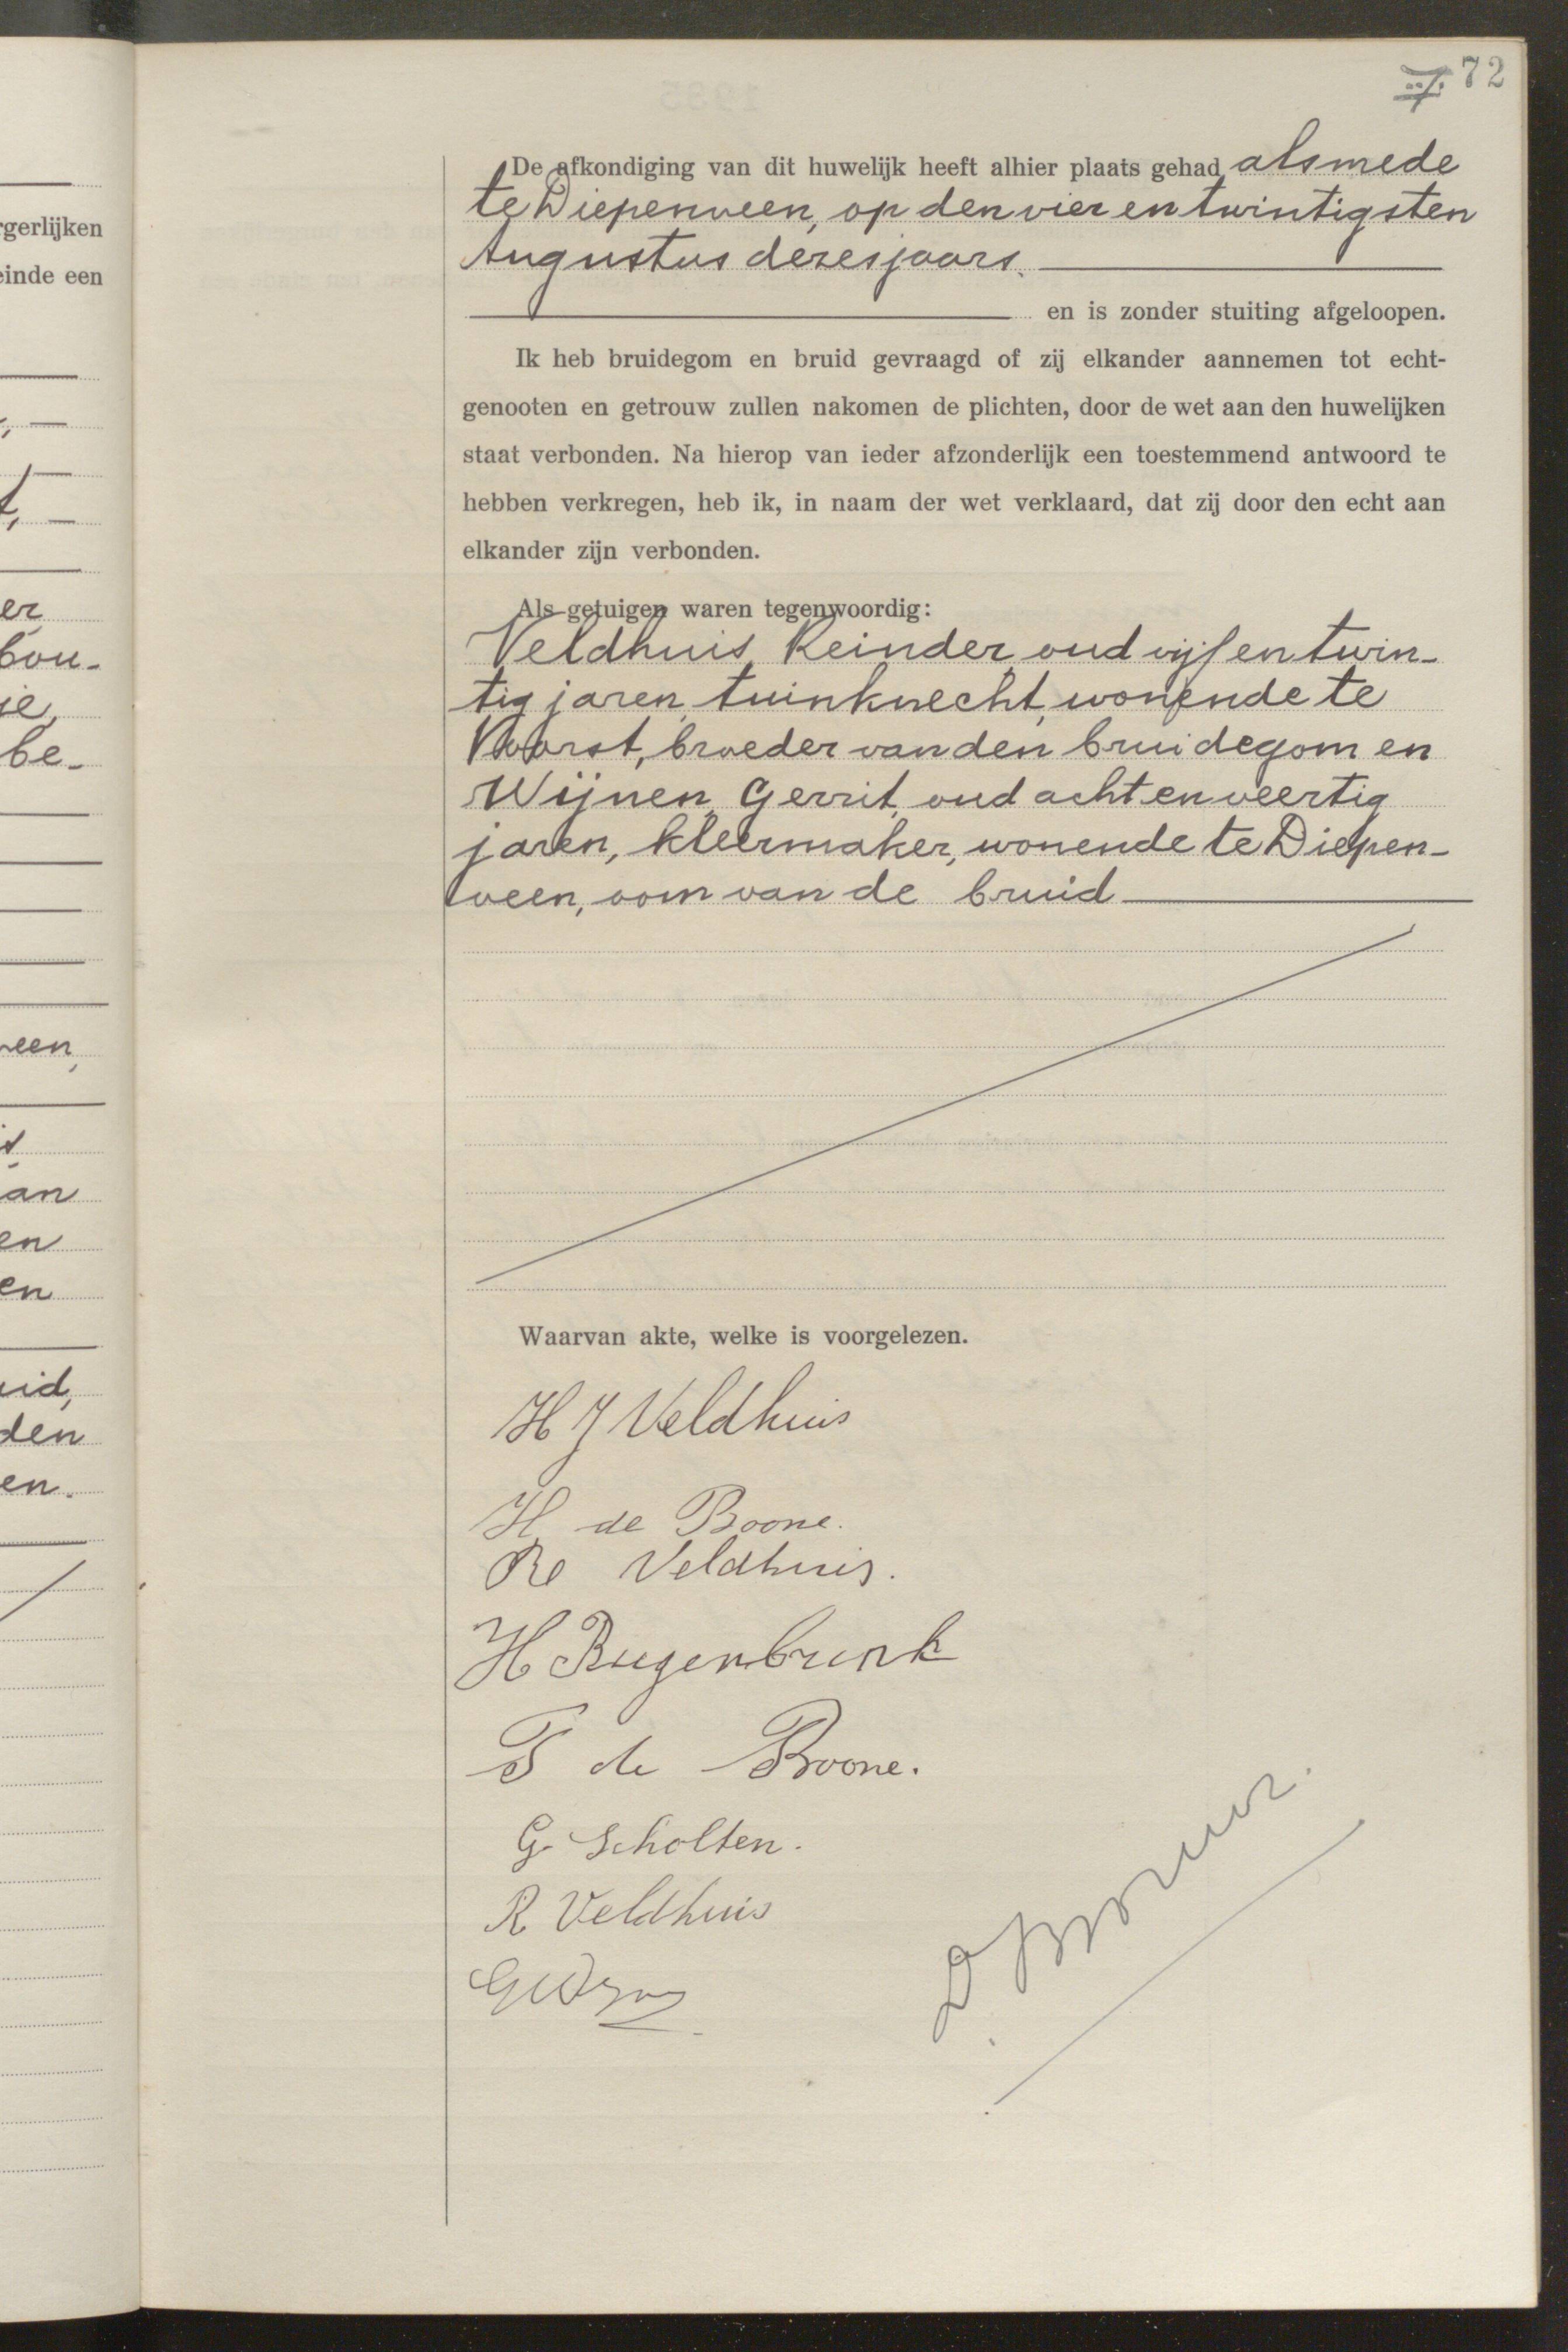 72
De afkondiging van dit huwelijk heeft alhier plaats gehad alsmede
te Diepenveen, op den vier en twintigsten
Augustus dezes jaars.
en is zonder stuiting afgeloopen.
Ik heb bruidegom en bruid gevraagd of zij elkander aannemen tot echt-
genooten en getrouw zullen nakomen de plichten, door de wet aan den huwelijken
staat verbonden. Na hierop van ieder afzonderlijk een toestemmend antwoord te
hebben verkregen, heb ik, in naam der wet verklaard, dat zij door den echt aan
elkander zijn verbonden.
Als getuigen waren tegenwoordig:
Veldhuis, Reinder, oud vijf en twin-
tig jaren, tuinknecht, wonende te
Voorst, broeder van den bruidegom en
Wijnen, Gerrit, oud acht en veertig
jaren, kleermaker, wonende te Diepen-
veen, oom van de bruid
Waarvan akte, welke is voorgelezen.
H J Veldhuis
H de Boone.
Re Veldhuis.
H
de Boone.
G Scholten.
R Veldhuis
rgerlijken
einde een
er
bou-
ie,
be-
veen,
an
en
en
uid,
den
en.